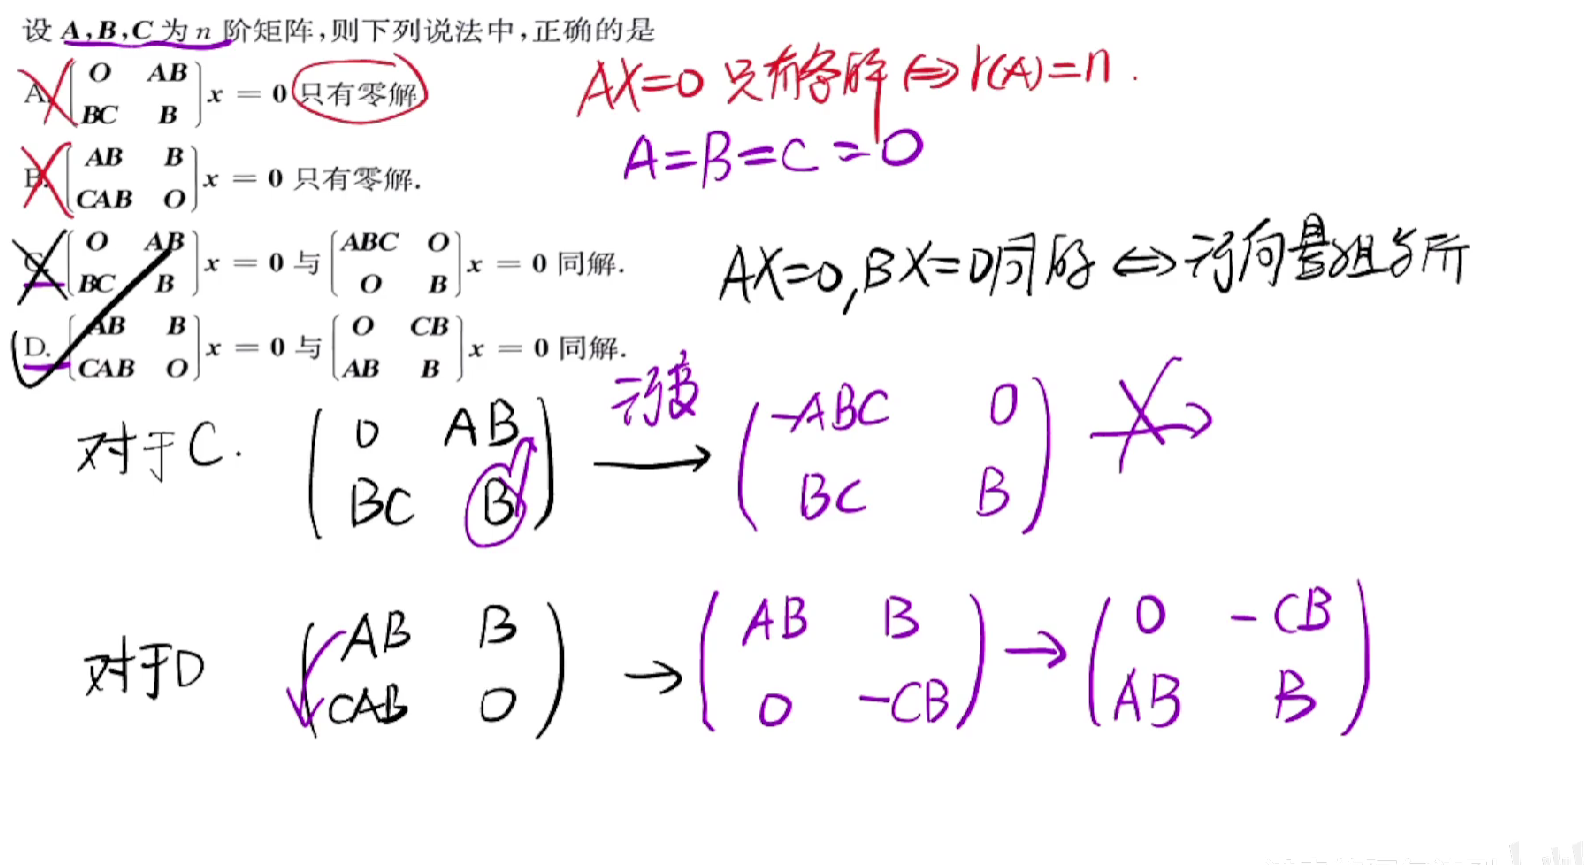 设 A,B,C 为 n 阶矩阵,则下列说法中,正确的是
A. [O AB; BC B] x = 0 只有零解
B. [AB B; CAB O] x = 0 只有零解.
C. [O AB; BC B] x = 0 与 [ABC O; O B] x = 0 同解.
D. [AB B; CAB O] x = 0 与 [O CB; AB B] x = 0 同解.
AX=0 只有零解 ⇔ r(A)=n.
A=B=C=0
AX=0,BX=0同解 ⇔ 行向量组等价
对于C. (0 AB; BC B) 行变 → (-ABC 0; BC B)
对于D (AB B; CAB 0) → (AB B; 0 -CB) → (0 -CB; AB B)